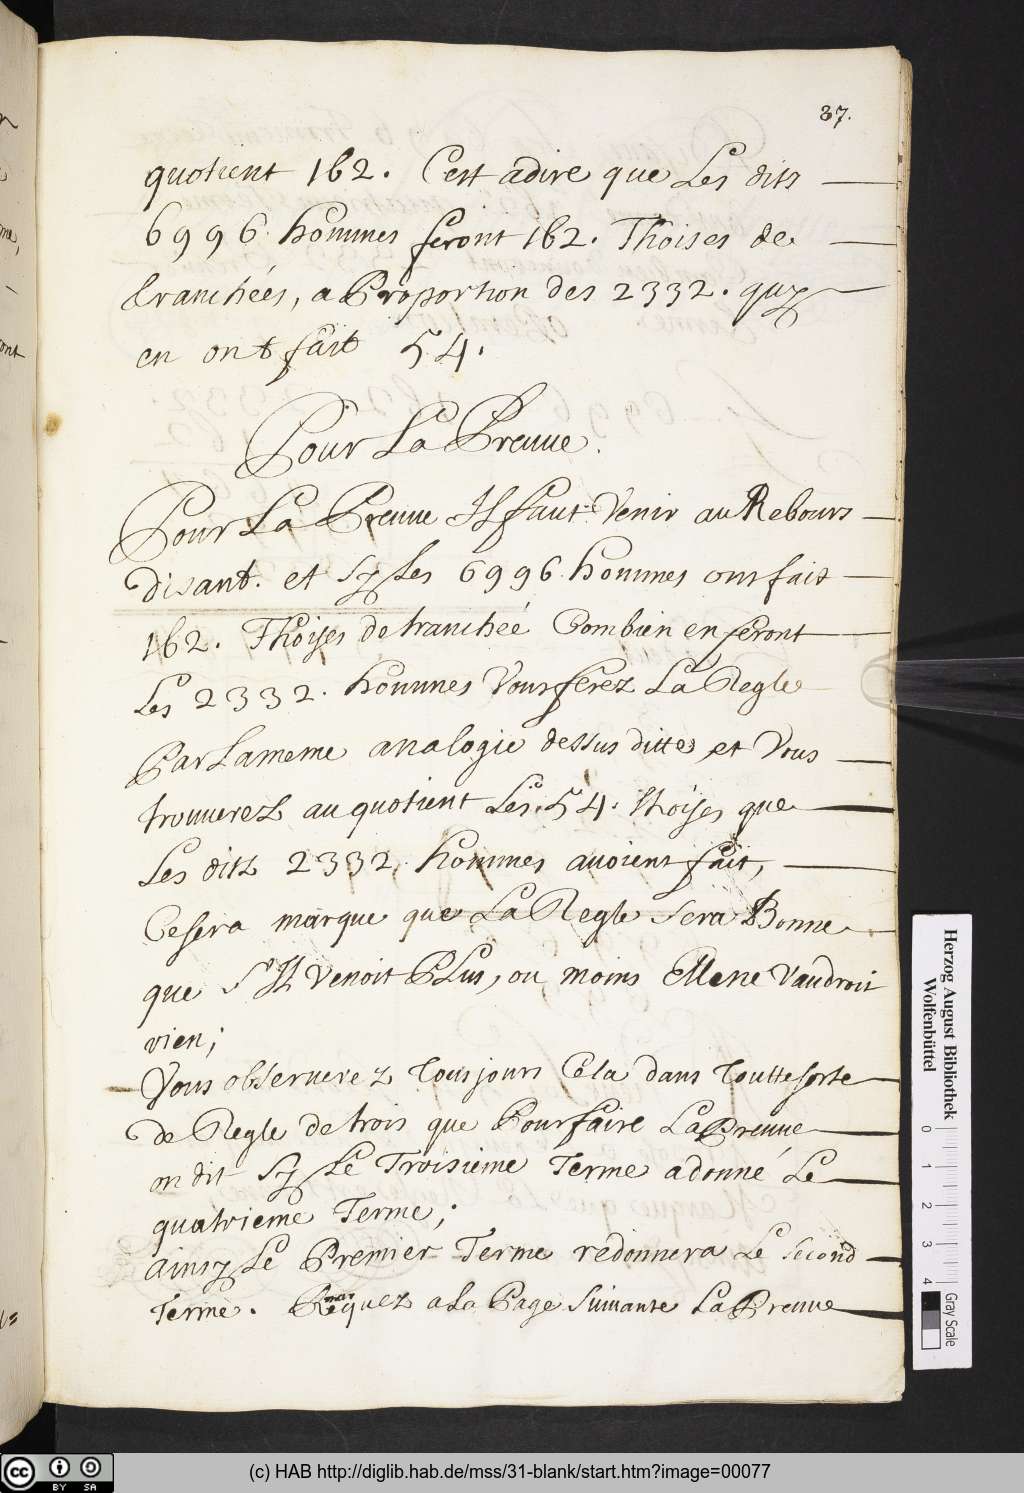 37.
quotient 162. C'est adire que Les dits
6996 hommes feront 162. Thoises de
tranchées, a Proportion des 2332. quy
en ont fait 54.
Pour La Preuue.
Pour La Preuue Il faut Venir au Rebours
disant. et Sy Les 6996 hommes ont fait
162. Thoises de tranchée Combien en feront
Les 2332. hommes Vous ferez La Regle
Par Lameme analogie dessus ditte et Vous
trouuerez au quotient Les. 54. thoises que
Les dits 2332. hommes auoient fait,
Ce sera marque que La Regle Sera Bonne
que S'Il Venoit PLus, ou moins Elle ne Vaudroit
rien;
Vous obseruerez tousjours Cela dans toutte sorte
de Regle de trois que Pour faire La Preuue
on dit Sy Le Troisieme Terme a donné Le
quatrieme Terme;
ainsy Le Premier Terme redonnera Le Second
Terme. Remarquez a La Page Suiuante La Preuue
Herzog August Bibliothek
Wolfenbüttel
0 1 2 3 4
Gray Scale
cc BY SA
(c) HAB http://diglib.hab.de/mss/31-blank/start.htm?image=00077